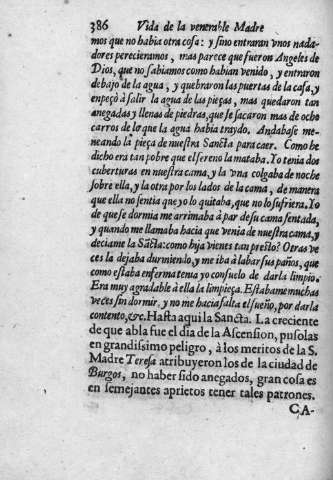 386 Vida de la venerable Madre
mos que no habia otra cosa: y sino entraran vnos nada-
dores perecieramos, mas parece que fueron Angeles de
Dios, que no sabiamos como habian venido, y entraron
debajo de la agua, y quebraron las puertas de la casa, y
enpeçò à salir la agua de las pieças, mas quedaron tan
anegadas y llenas de piedras, que se sacaron mas de ocho
carros de lo que la agua habia traydo. Andabase me-
neando la pieça de nuestra Sancta para caer. Como he
dicho era tan pobre que el sereno la mataba. Yo tenia dos
cuberturas en nuestra cama, y la vna colgaba de noche
sobre ella, y la otra por los lados de la cama, de manera
que ella no sentia que yo lo quitaba, que no lo sufriera. Yo
de que se dormia me arrimaba à par de su cama sentada,
y quando me llamaba hacia que venia de nuestra cama, y
deciame la Sãcta: como hija vienes tan presto? Otras ve
ces la dejaba durmiendo, y me iba à labar sus paños, que
como estaba enferma tenia yo consuelo de darla limpio.
Era muy agradable à ella la limpieça. Estabame muchas
veces sin dormir, y no me hacia falta el sueño, por darla
contento, &c. Hasta aqui la Sancta. La creciente
de que abla fue el dia de la Ascension, pusolas
en grandissimo peligro, à los meritos de la S.
Madre Teresa atribuyeron los de la ciudad de
Burgos, no haber sido anegados, gran cosa es
en semejantes aprietos tener tales patrones.
CA-